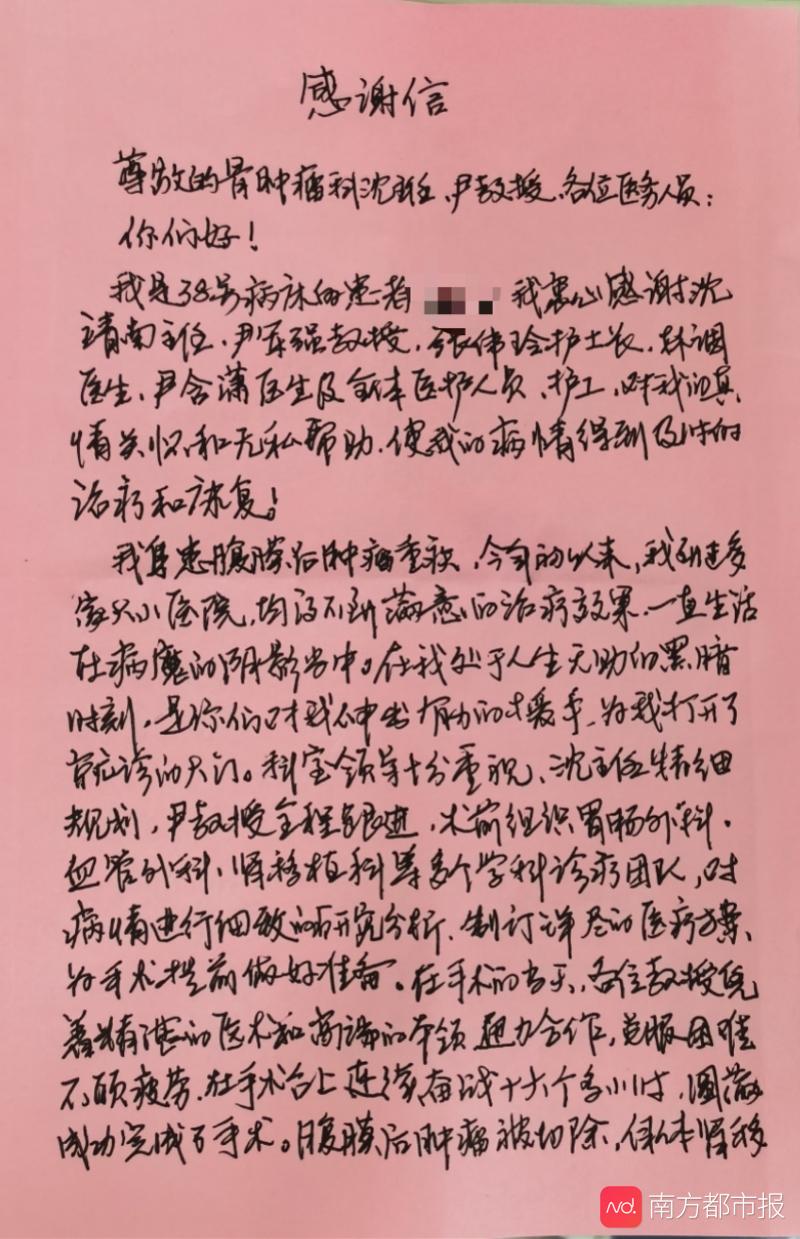 感谢信
尊敬的骨肿瘤科沈主任、尹教授、各位医务人员：
你们好！
我是38号病床的患者 我衷心感谢沈
靖南主任、尹军强教授、张伟玲护士长、林调
医生、尹含潇医生及全体医护人员、护工，对我的真
情关怀和无私帮助，使我的病情得到及时的
治疗和康复！
我身患腹膜后肿瘤重积，今年初以来，我到过多
家大小医院，均得不到满意的治疗效果，一直生活
在病魔的阴影当中。在我处于人生无助的黑暗
时刻，是你们对我伸出有力的援手、为我打开了
诊的大门。科室领导十分重视、沈主任精细
规划，尹教授全程跟进，术前组织胃肠外科、
血管外科、肾移植科等多个学科诊疗团队，对
病情进行细致的研究分析、制订详尽的医疗方案、
为手术提前做好准备。在手术的当天，各位教授凭
着精湛的医术和高强的本领通力合作，克服困难
不顾疲劳，在手术台上连续奋战十六个多小时，圆满
成功完成了手术。腹膜后肿瘤被切除，体肾移
nd. 南方都市报